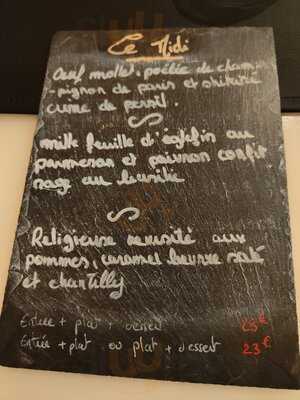 Le Midi
Oeuf mollet, poêlée de champi
-pignon de paris et shiitaké
creme de persil.
mille feuille d'églefin au
parmesan et poivron confit
au basilic
Religieuse revisité aux
pommes, caramel beurre salé
et chantilly
Entrée + plat + dessert 25€
Entrée + plat ou plat + dessert 23€